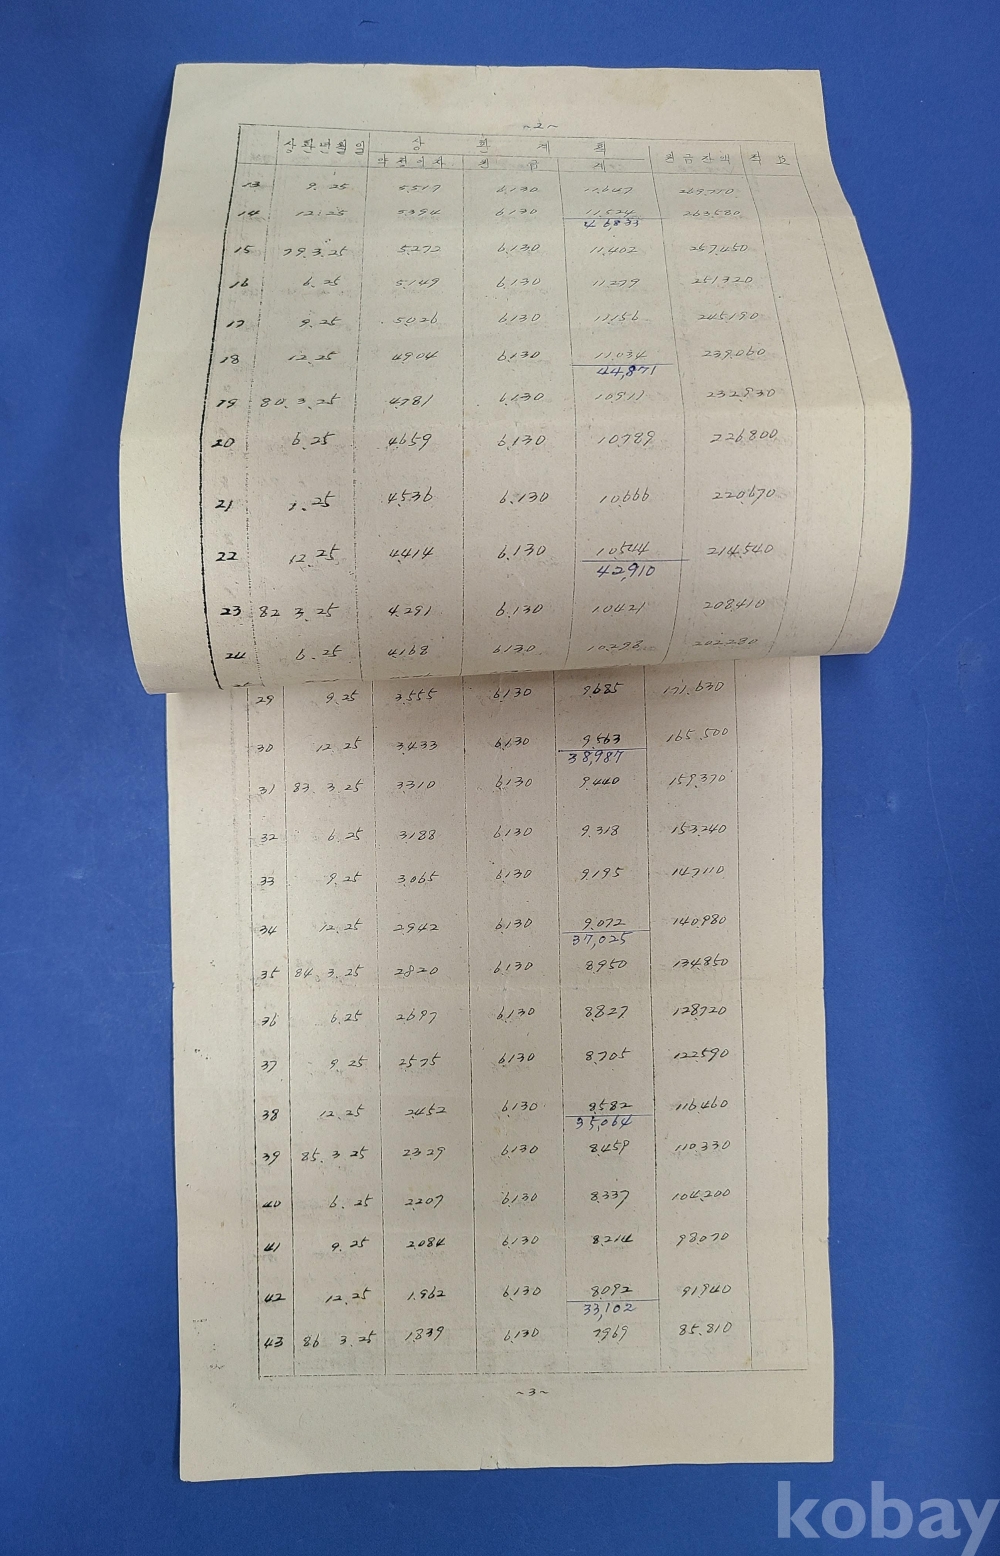 ~2~
상환년월일 상 환 계 획 원금잔액 적 요
약정이자 원 금 계
13 9.25 5,517 6,130 11,647 269,710
14 12.25 5,394 6,130 11,524 263,580
46,833
15 79.3.25 5,272 6,130 11,402 257,450
16 6.25 5,149 6,130 11,279 251,320
17 9.25 5,026 6,130 11,156 245,190
18 12.25 4,904 6,130 11,034 239,060
44,871
19 80.3.25 4,781 6,130 10,911 232,930
20 6.25 4,659 6,130 10,789 226,800
21 9.25 4,536 6,130 10,666 220,670
22 12.25 4,414 6,130 10,544 214,540
42,910
23 82 3.25 4,291 6,130 10,421 208,410
24 6.25 4,168 6,130 10,298 202,280
29 9.25 3,555 6,130 9,685 171,630
30 12.25 3,433 6,130 9,563 165,500
38,987
31 83.3.25 3,310 6,130 9,440 159,370
32 6.25 3,188 6,130 9,318 153,240
33 9.25 3,065 6,130 9,195 147,110
34 12.25 2,942 6,130 9,072 140,980
37,025
35 84.3.25 2,820 6,130 8,950 134,850
36 6.25 2,697 6,130 8,827 128,720
37 9.25 2,575 6,130 8,705 122,590
38 12.25 2,452 6,130 8,582 116,460
35,064
39 85.3.25 2,329 6,130 8,459 110,330
40 6.25 2,207 6,130 8,337 104,200
41 9.25 2,084 6,130 8,214 98,070
42 12.25 1,962 6,130 8,092 91,940
33,102
43 86 3.25 1,839 6,130 7,969 85,810
~3~
kobay